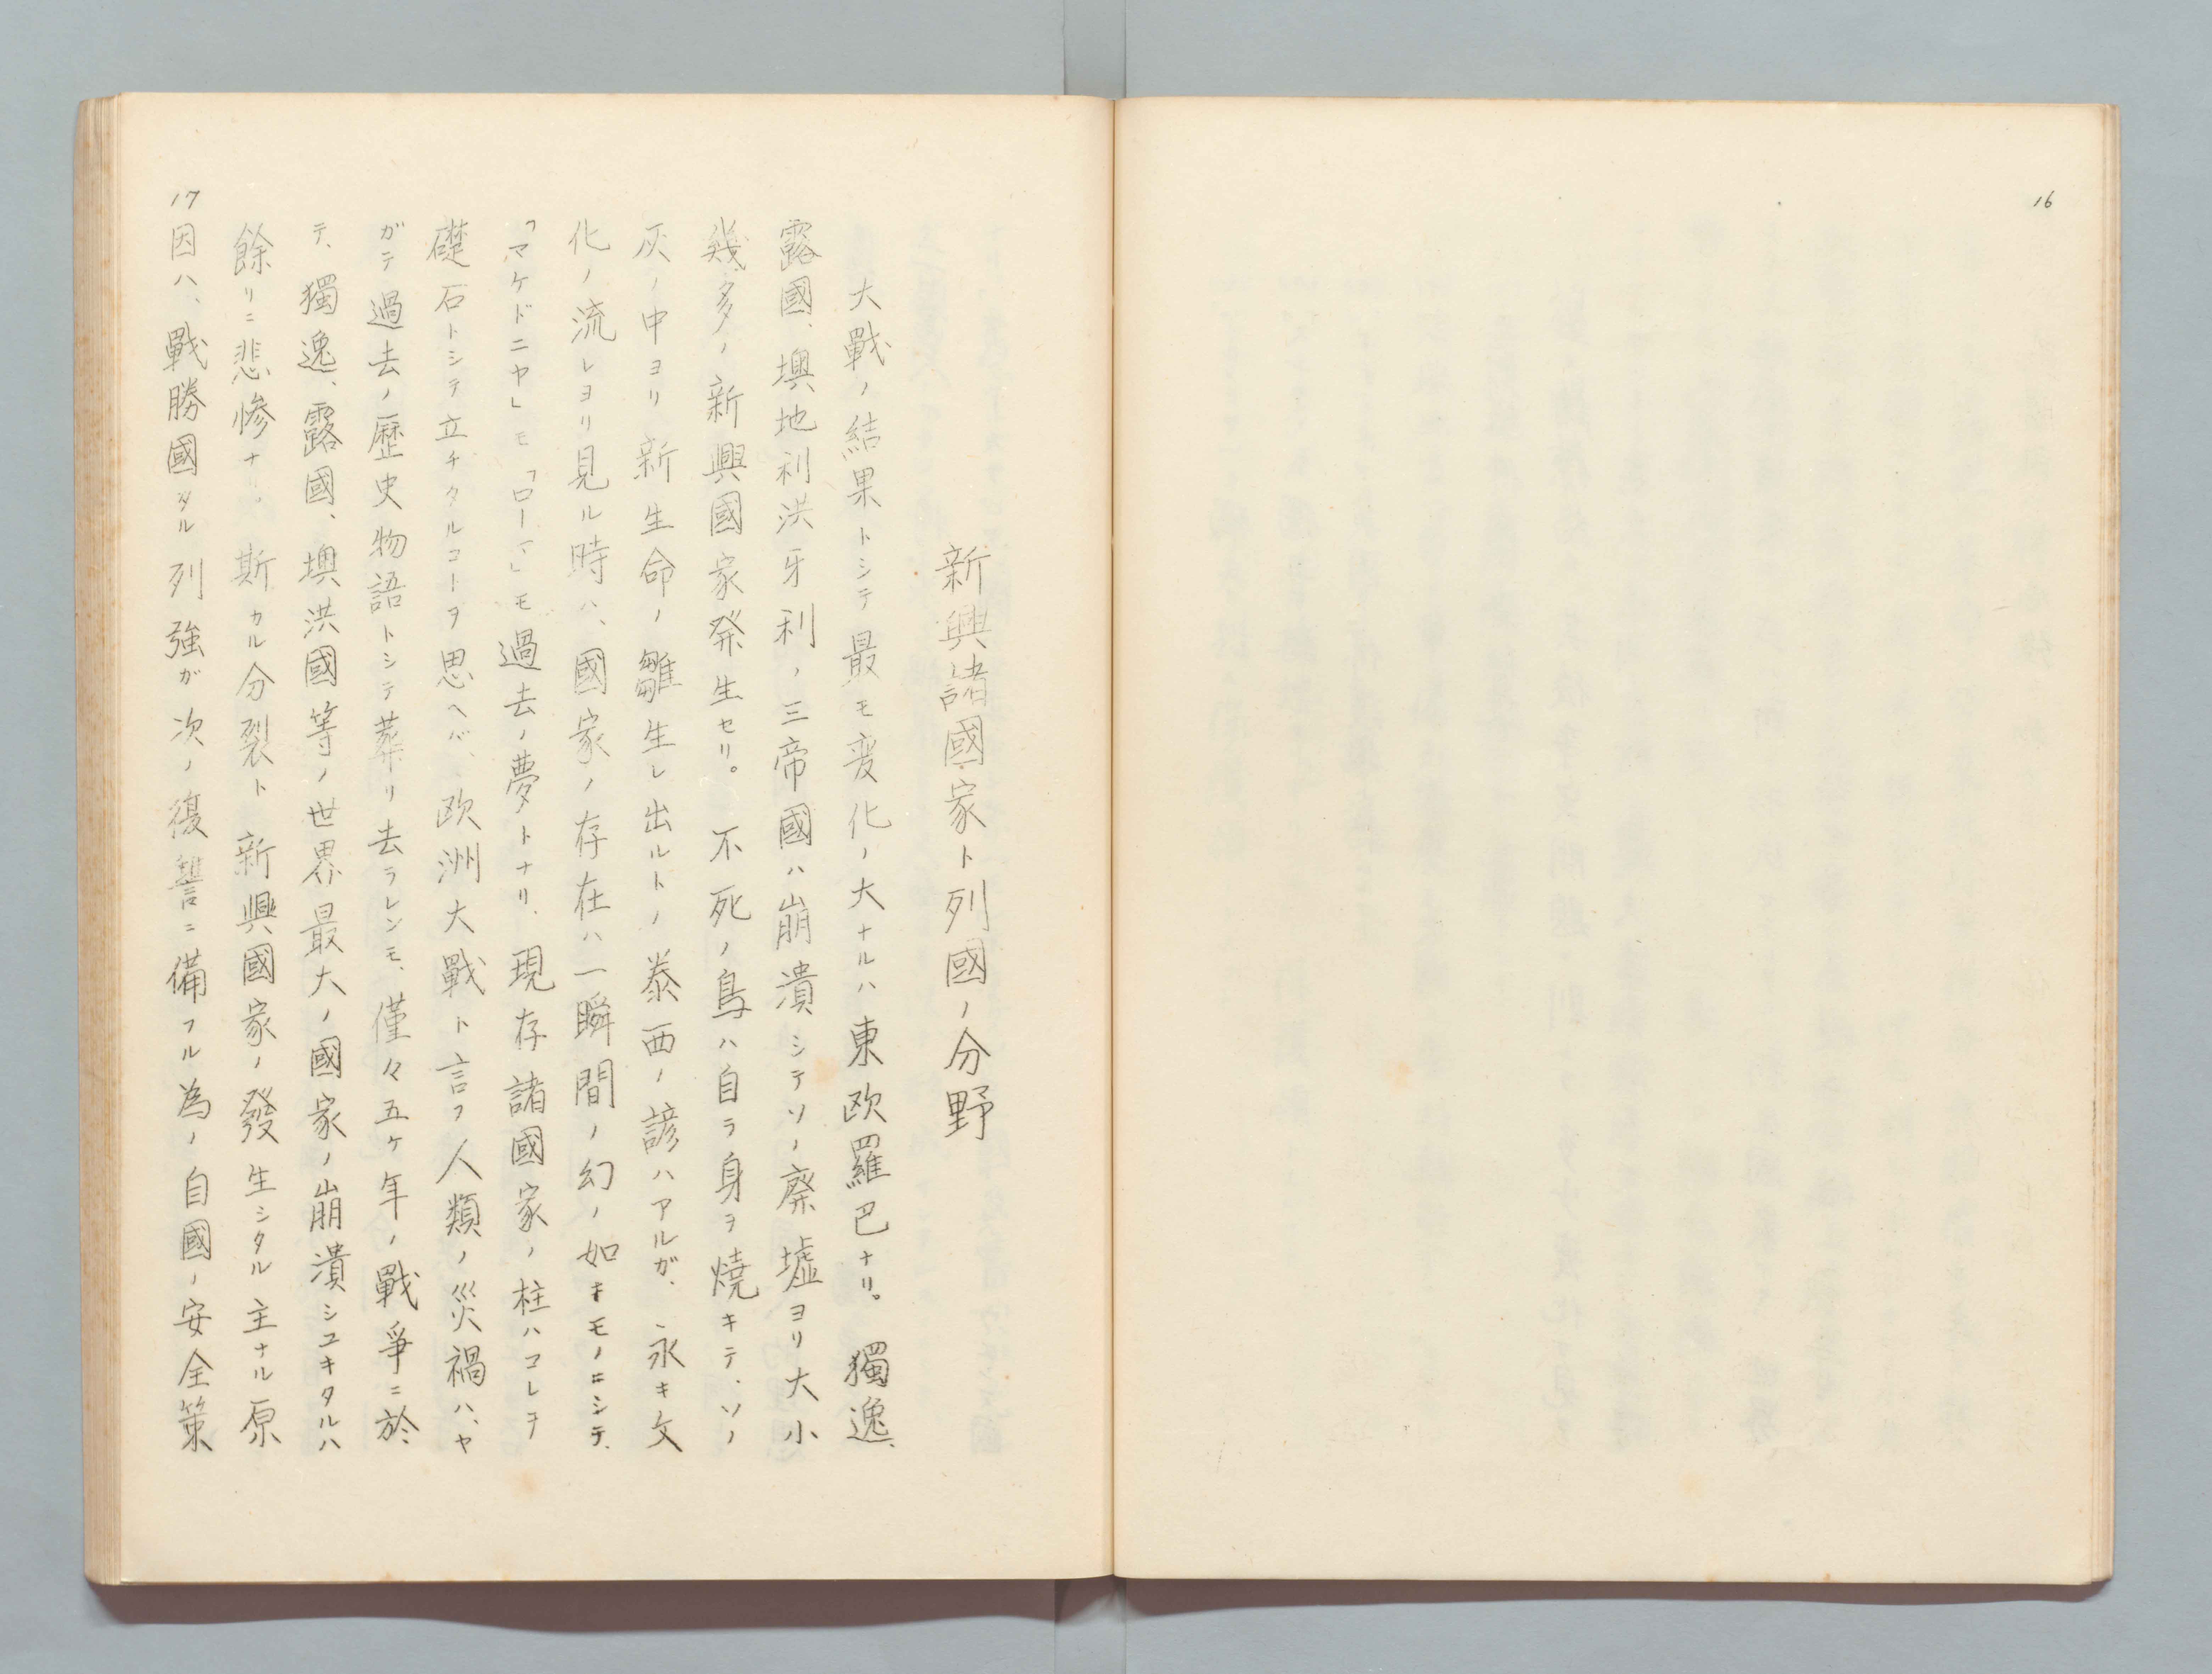 16
新興諸國家ト列國ノ分野
大戰ノ結果トシテ最モ変化ノ大ナルハ東欧羅巴ナリ。獨逸、
露國、墺地利洪牙利ノ三帝國ハ崩潰シテソノ廃墟ヨリ大小
幾多ノ新興國家発生セリ。不死ノ鳥ハ自ラ身ヲ焼キテ、ソノ
灰ノ中ヨリ新生命ノ雛生レ出ルトノ泰西ノ諺ハアルガ、永キ文
化ノ流レヨリ見ル時ハ、國家ノ存在ハ一瞬間ノ幻ノ如キモノニシテ、
「マケドニヤ」モ「ローマ」モ過去ノ夢トナリ、現存諸國家ノ柱ハコレヲ
礎石トシテ立チタルコトヲ思ヘバ、欧洲大戰ト言フ人類ノ災禍ハ、ヤ
ガテ過去ノ歴史物語トシテ葬リ去ラレンモ、僅々五ケ年ノ戰爭ニ於
テ、獨逸、露國、墺洪國等ノ世界最大ノ國家ノ崩潰シユキタルハ
餘リニ悲惨ナリ。斯カル分裂ト新興國家ノ發生シタル主ナル原
17
因ハ、戰勝國タル列強ガ次ノ復讐ニ備フル為ノ自國ノ安全策